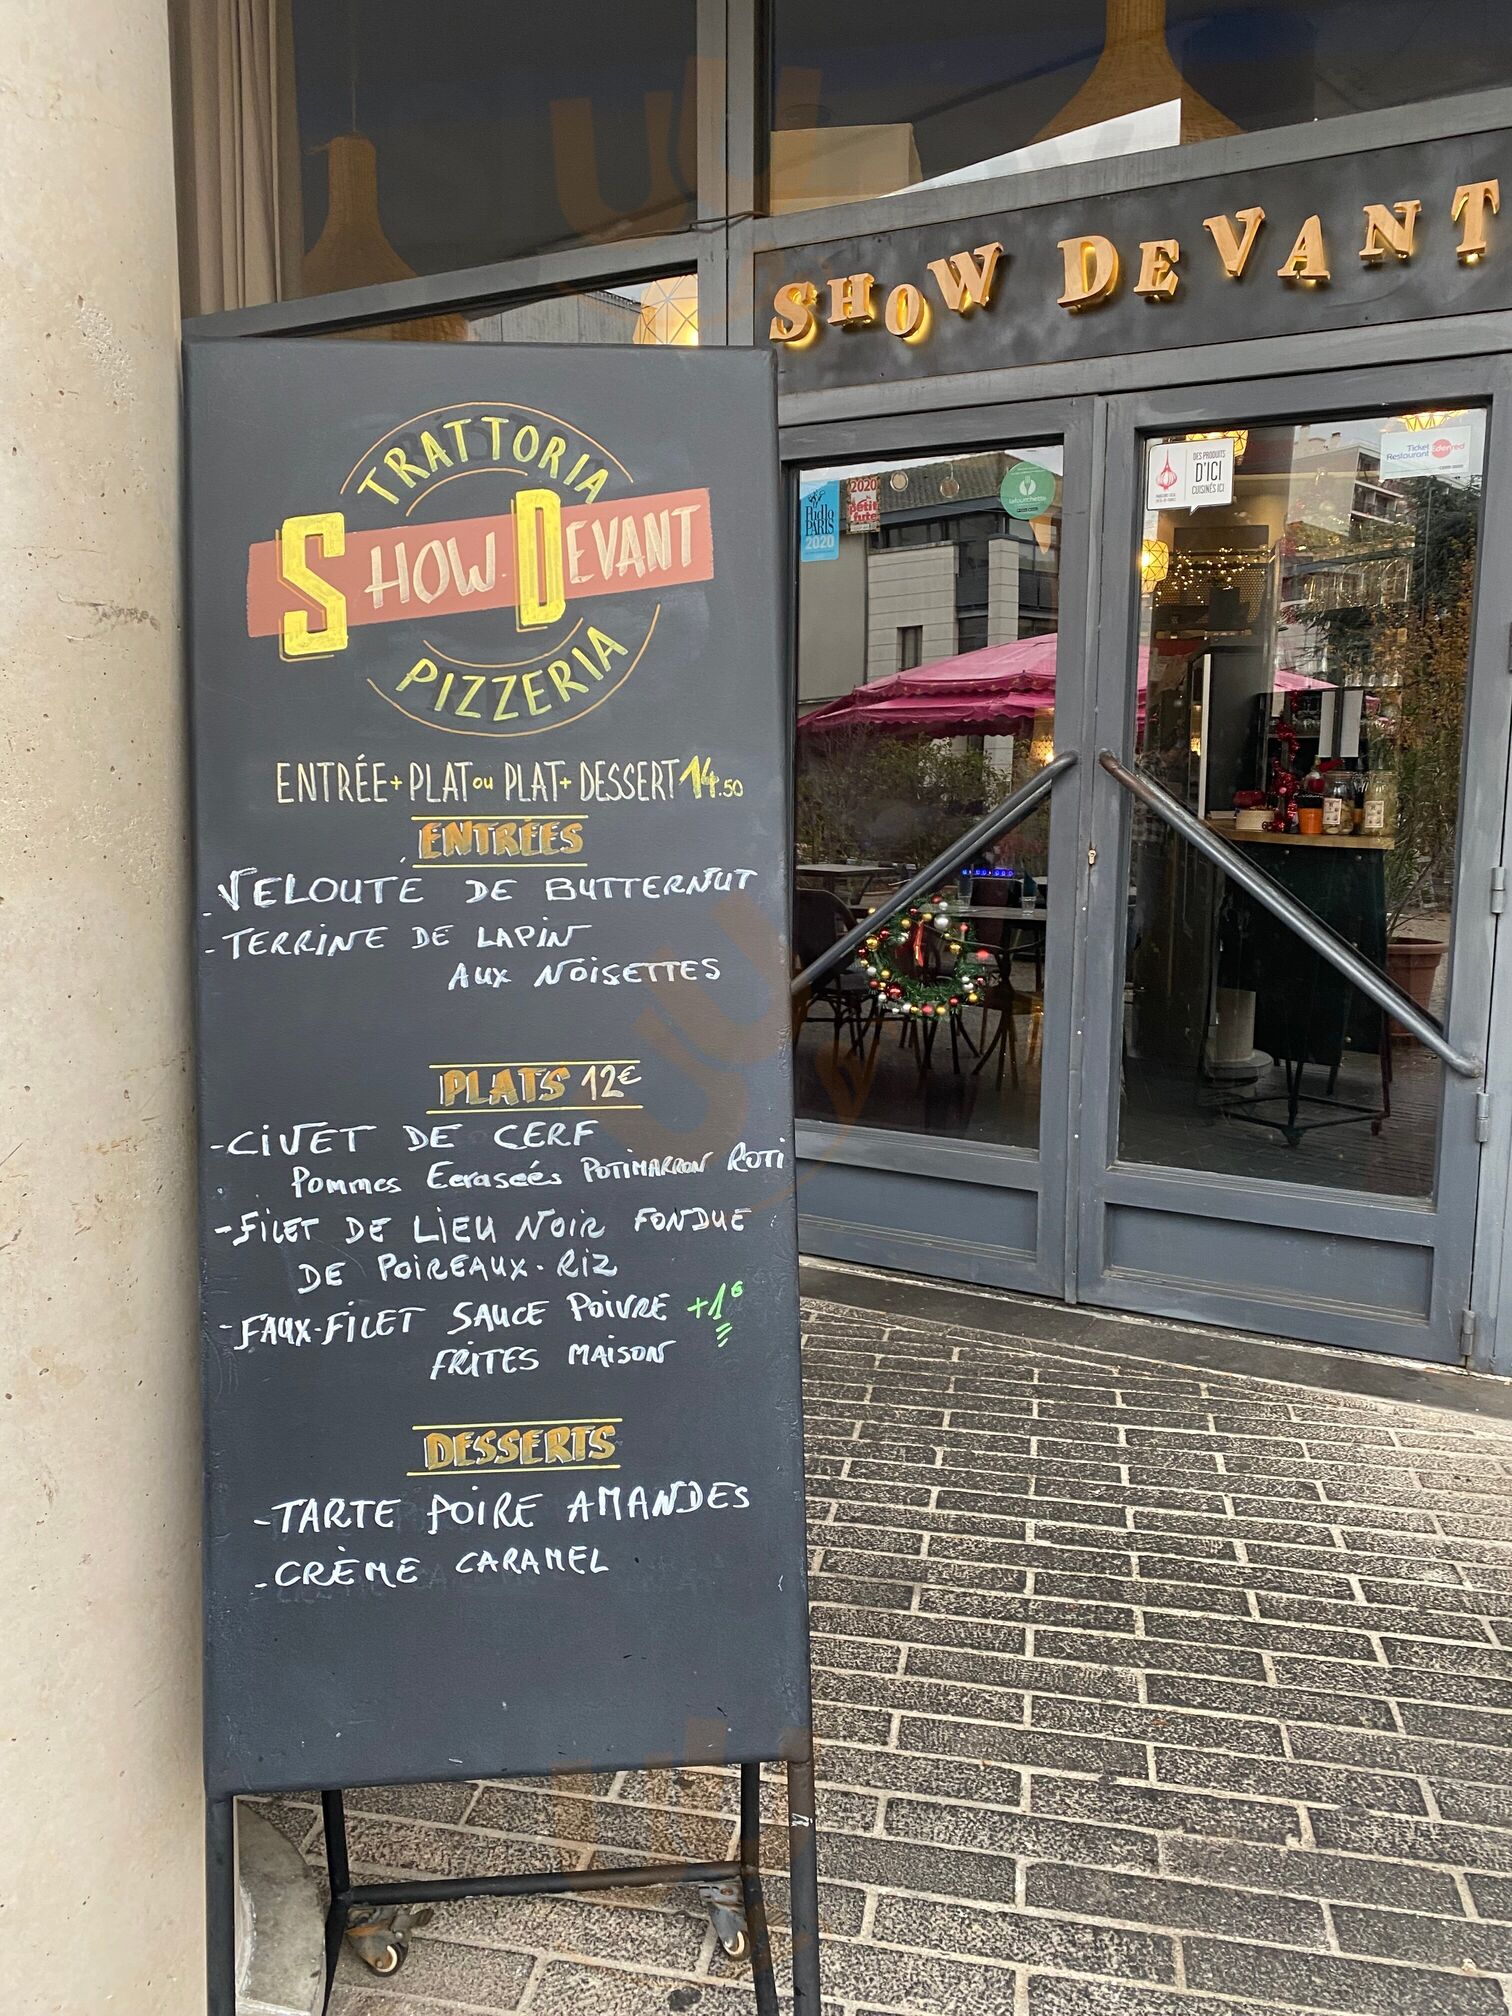 SHOW DEVANT
TRATTORIA
SHOW DEVANT
PIZZERIA
ENTRÉE + PLAT ou PLAT + DESSERT 14.50
ENTRÉES
- VELOUTÉ DE BUTTERNUT
- TERRINE DE LAPIN
AUX NOISETTES
PLATS 12€
- CIVET DE CERF
Pommes Ecrasées POTIMARRON ROTI
- FILET DE LIEU NOIR FONDUE
DE POIREAUX - RIZ
- FAUX-FILET SAUCE POIVRE +1€
FRITES MAISON
DESSERTS
- TARTE POIRE AMANDES
- CRÈME CARAMEL
Pudlo
PARIS
2020
2020
petit
futé
lafourchette
DES PRODUITS
D'ICI
CUISINÉS ICI
Ticket
Restaurant Edenred